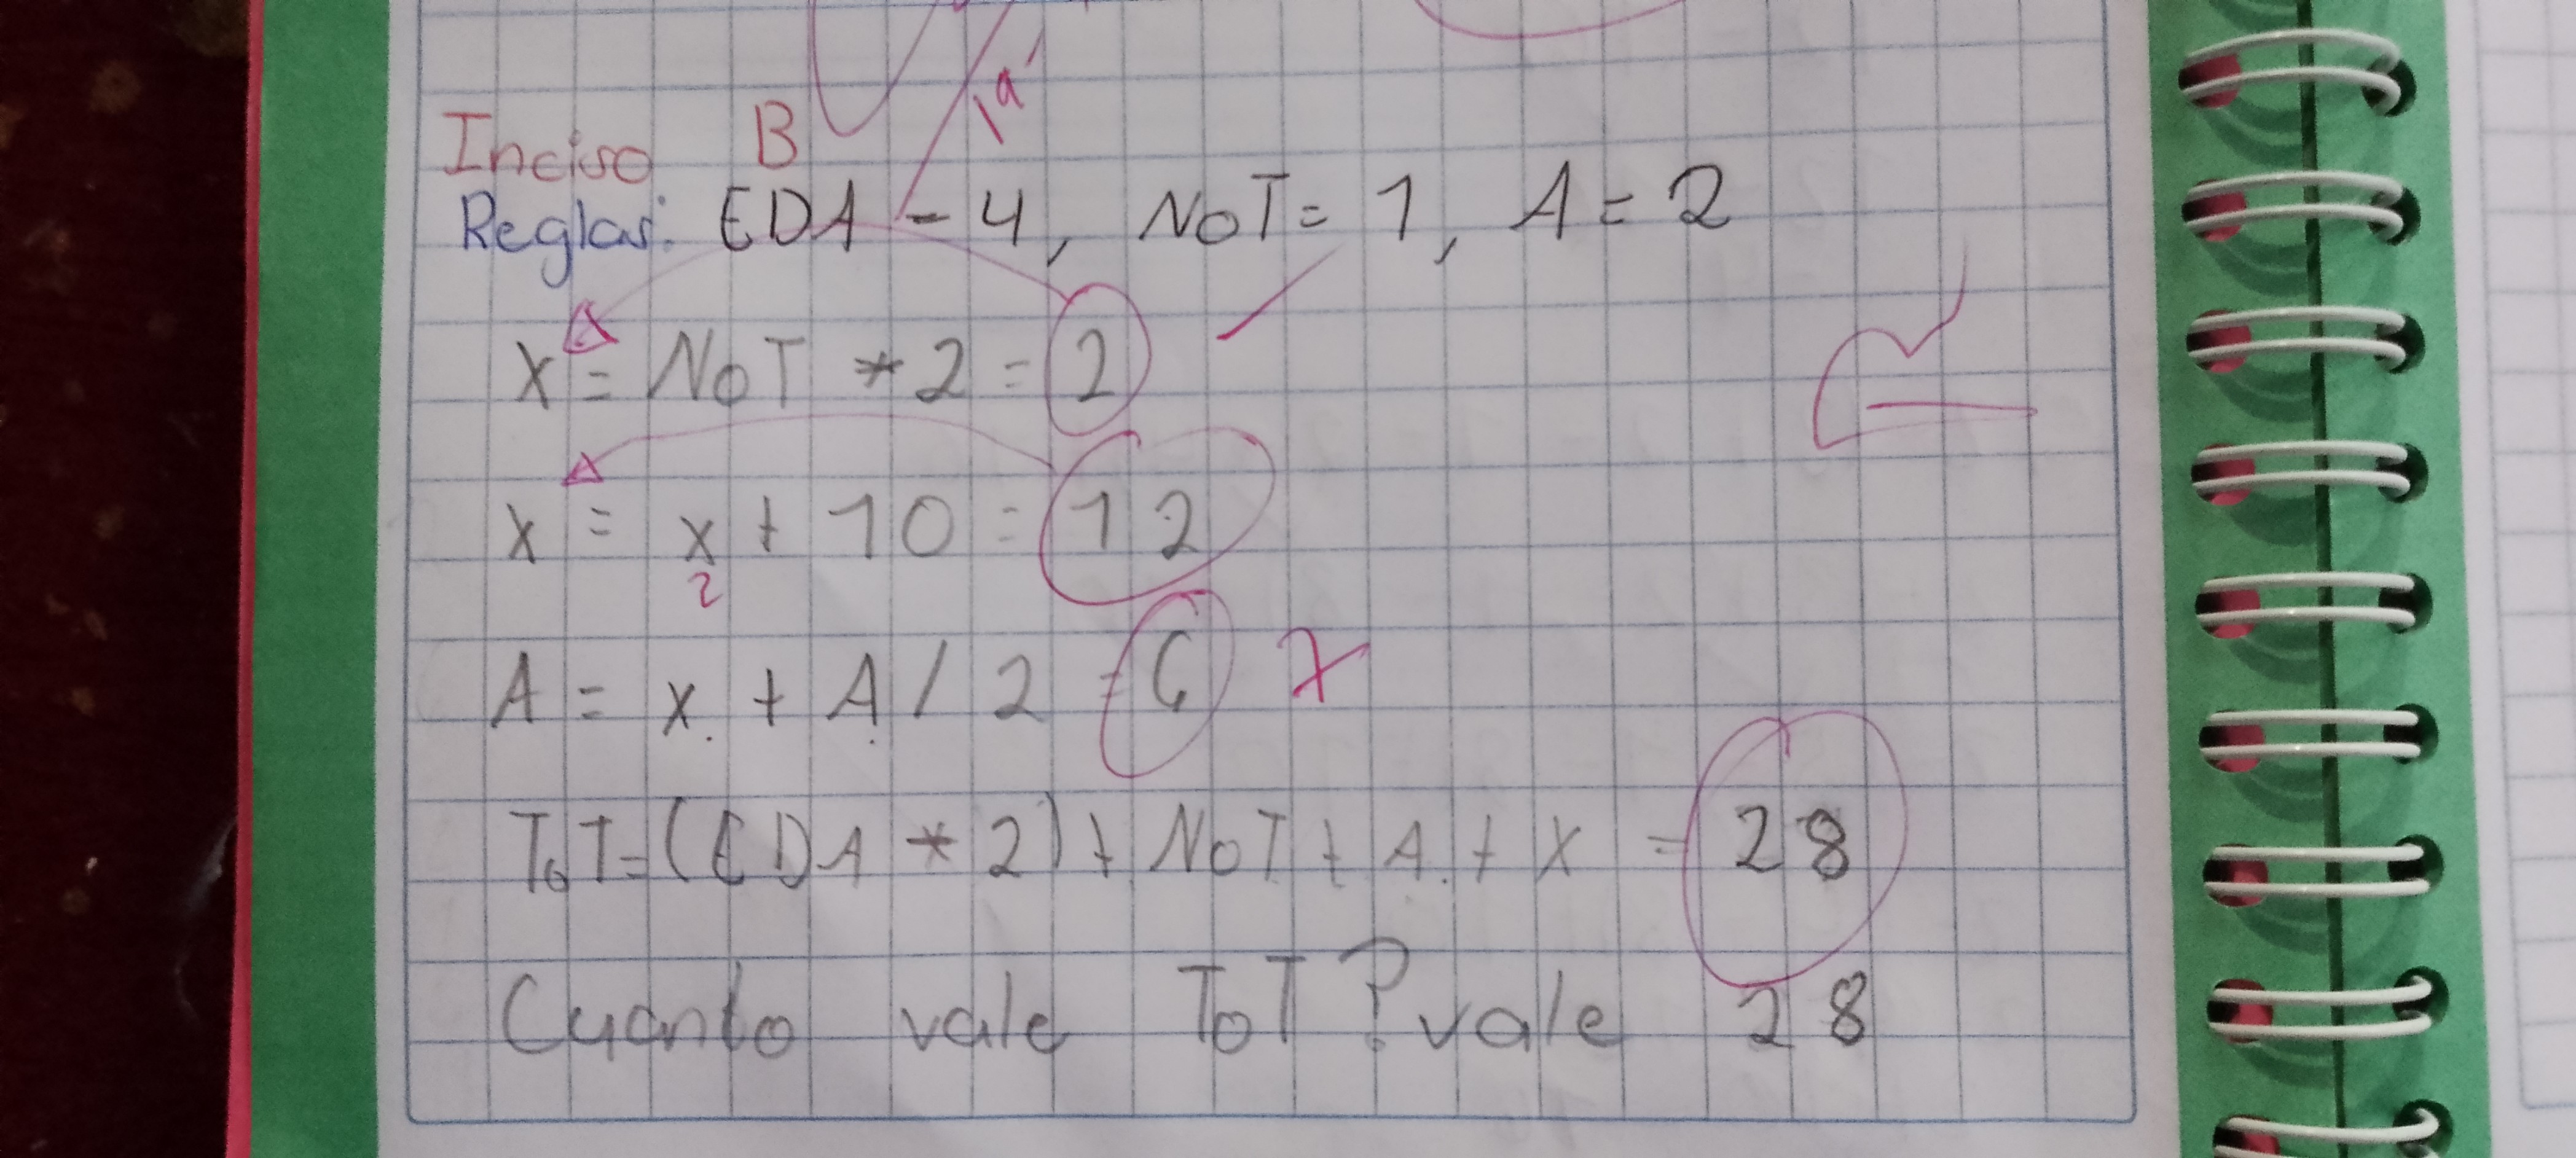 Inciso B
Reglas: EDA = 4, NoT = 1, A = 2
X = NoT * 2 = 2
x = x + 10 = 12
2
A = x + A / 2 = 6
ToT = (EDA * 2) + NoT + A + X = 28
Cuanto vale ToT? vale 28